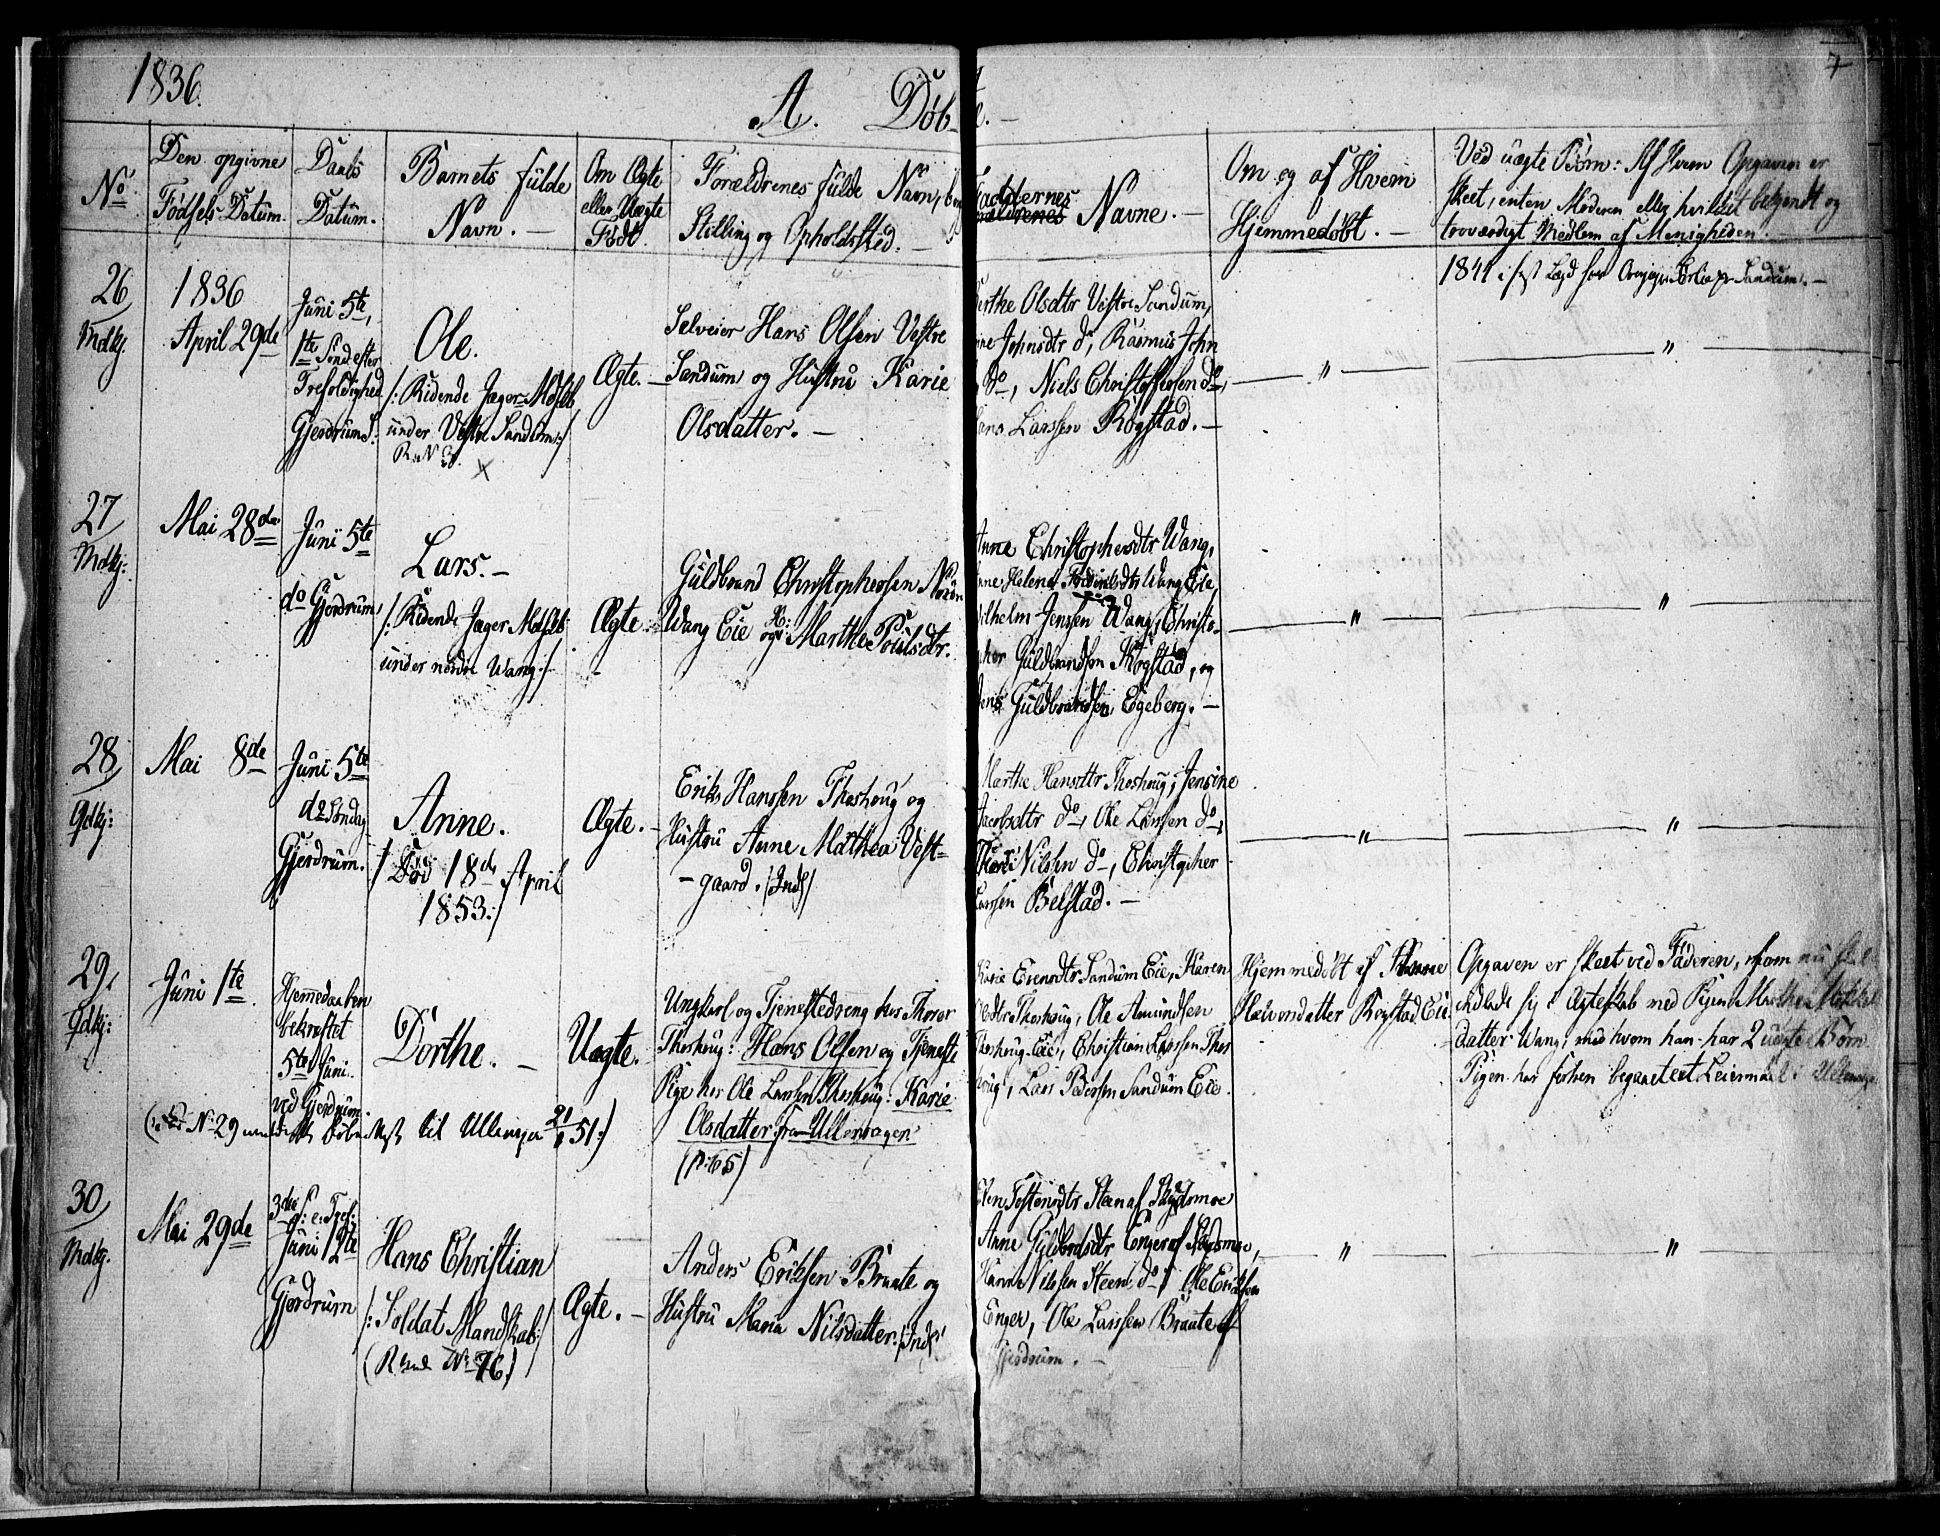 1836.
7
A. Døb-
Den opgivne
Daabs
Barnets fulde
Om Ægte
Forældrenes fulde Navn,
Faddernes
Om og af Hvem
Ved uægte Børn: Af Hvem Opgaven er
No
Fødsels-Datum.
Datum.
Navn. —
eller Uægte
Stilling og Opholdssted. —
Navne. —
Hjemmedøbt. —
skeet, enten Moderen eller hvilket bekjendt og
Født.
troværdigt Medlem af Menigheden.
26
Mdkj.
1836
April 29de
Juni 5te,
1te Sønd. efter
Trefoldighed
Gjerdrum
Ole.
/: Ridende Jæger-Mdskb
under Vestre Sandum:/
Ægte. —
Selveier Hans Olsen Vestre
Sandum og Hustru Karie
Olsdatter. —
Olsdtr Vestre Sandum,
Johnsdtr do, Rasmus John
do, Niels Christophersen do,
Larssen Rogstad. —
"
1841
"
27
Mdkj:
Mai 28de
Juni 5te
do Gjerdrum
Lars. —
/: Ridende Jæger Mdskb
under nordre Wang:/
Ægte —
Guldbrand Christophersen
Wang Eie og Marthe Poulsdtr.
Anne Christophersdtr Wang,
Helene Wang Eie,
Wilhelm Jenssen Wang, Christo-
pher Guldbrandsen Rogstad, og
Jens Guldbrandsen Egeberg. —
"
"
28
Qdkj:
Mai 8de
Juni 5te
do Søndag
Gjerdrum.
Anne.
/: Død 18de April
1853:/
Ægte. —
Erik Hanssen Thoshoug og
Hustru Anne Mathea Vest-
- gaard. /Inds/
Marthe Hansdtr Thoshoug, Jensine
Jacobsdtr do, Ole Larssen do,
Nilssen do, Christopher
Larssen Belstad. —
"
"
29.
Qdkj:
Juni 1te
Hjemmedaaben
bekræftet
5te Juni
ved Gjerdrum.
Dorthe. —
Uægte.
Ungkarl og Tjenestedreng hos Thorer
Thoshoug: Hans Olsen og Tjeneste
Pige hos Ole Larssen Thoshoug: Karie
Olsdatter fra Ullensagen
Karie Evensdtr Sandum Eie, Karen
Thoshoug, Ole Amundsen
Thoshoug-Eie, Christian Larssen Thos
houg, Lars Pedersen Sandum Eie.
Hjemmedøbt af
Halvorsdatter Rogstad Eie
Opgaven er skeet ved Faderen, som nu
indlade sig i Ægteskab med Pigen Marthe
datter Wang, med hvem han har 2 uægte Børn.
Pigen har forhen begaaet eet Leiermaal i
No 29 til Ullensager 21/1 51:)
30
Mdkj.
Mai 29de
3die S. e. Tref.
Juni 12te
Gjerdrum
Hans Christian
/: Soldat Mandskab:/
(Rhand No 76)
Ægte. —
Anders Eriksen Braate og
Hustru Maria Nilsdatter. /Inds/
Tostensdtr Steen af
Anne Guldbrdsdtr Enger af
Nilssen Steen do, Ole Eriksen
Enger, Ole Larssen Braate af
Gjerdrum. —
"
"